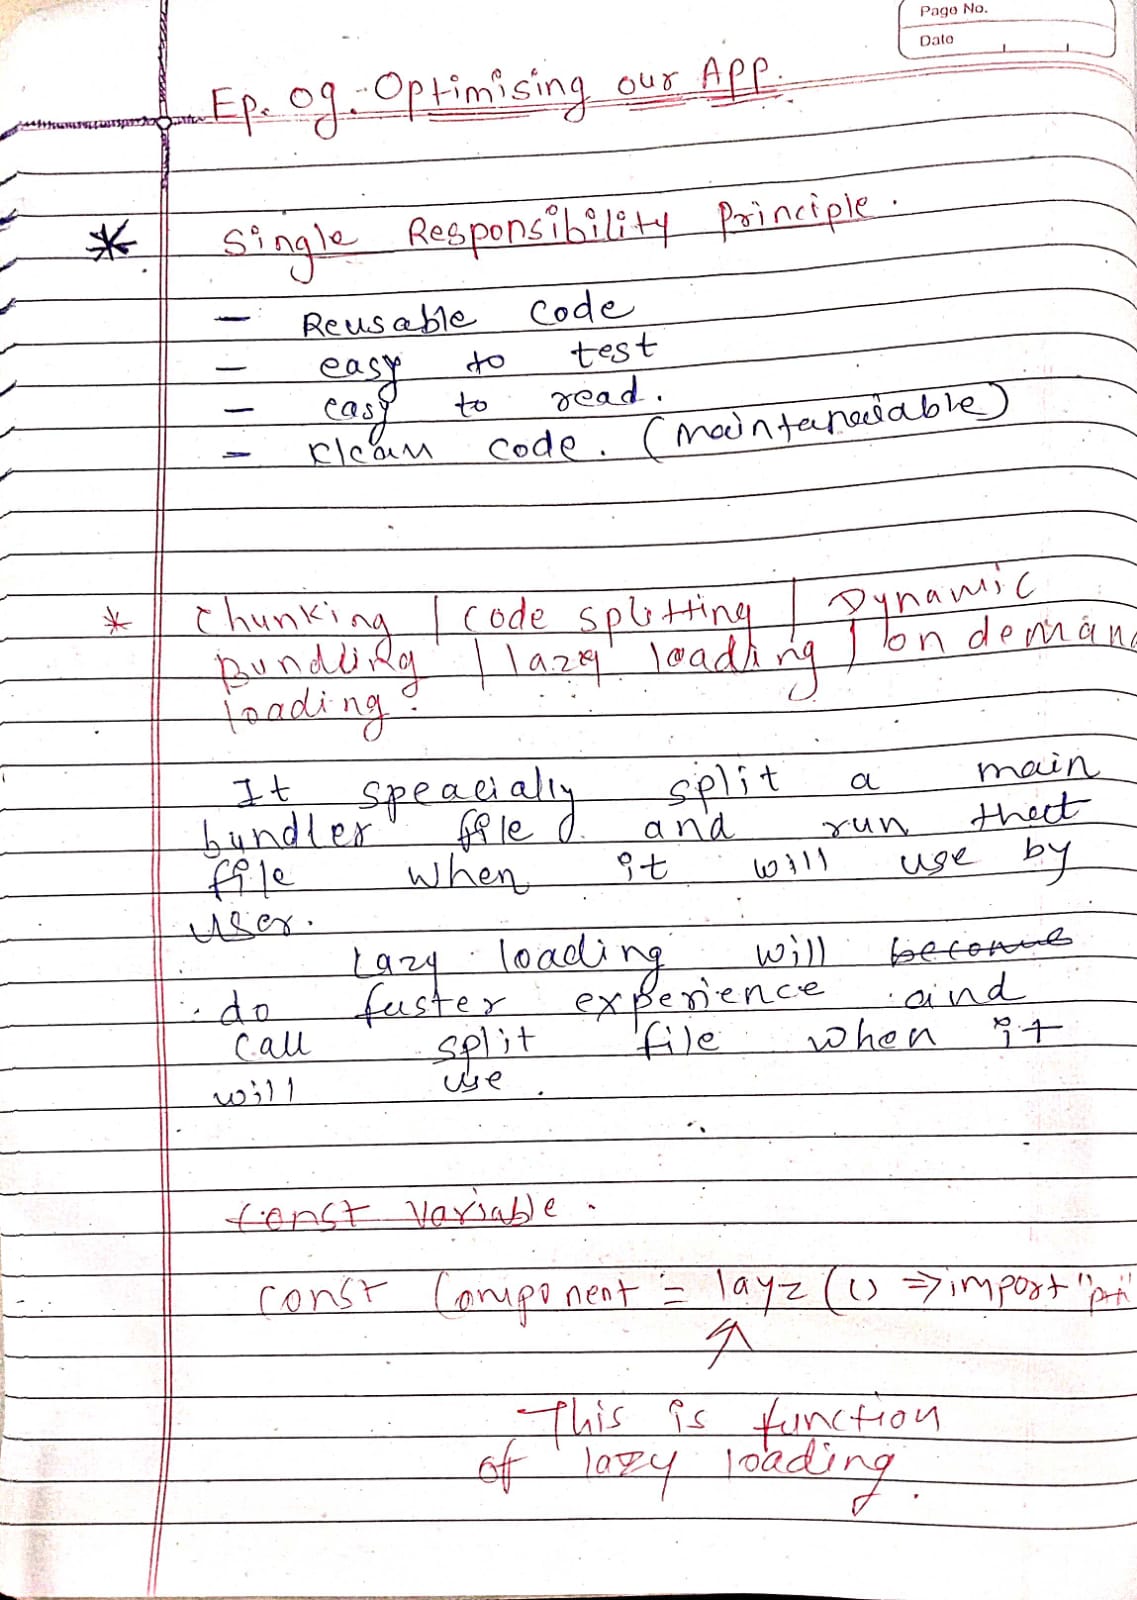 Page No.
Date
Ep. 09. - Optimising our App.
* Single Responsibility Principle.
— Reusable code
— easy to test
— easy to read.
— clean code. (
* Chunking / code splitting / Dynamic
Bundling / lazy loading / on deman
loading.
It speacially split a main
bundler file and run that
file when it will use by
user.
Lazy loading will become
do faster experience and
call split file when it
will use.
const variable.
const Component = layz (() => import "
This is function
of lazy loading.